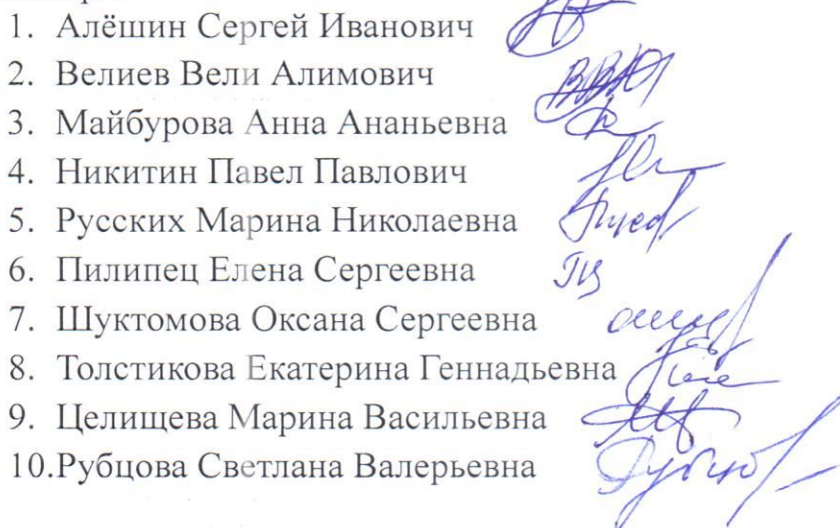 1. Алёшин Сергей Иванович
2. Велиев Вели Алимович
3. Майбурова Анна Ананьевна
4. Никитин Павел Павлович
5. Русских Марина Николаевна
6. Пилипец Елена Сергеевна
7. Шуктомова Оксана Сергеевна
8. Толстикова Екатерина Геннадьевна
9. Целищева Марина Васильевна
10.Рубцова Светлана Валерьевна